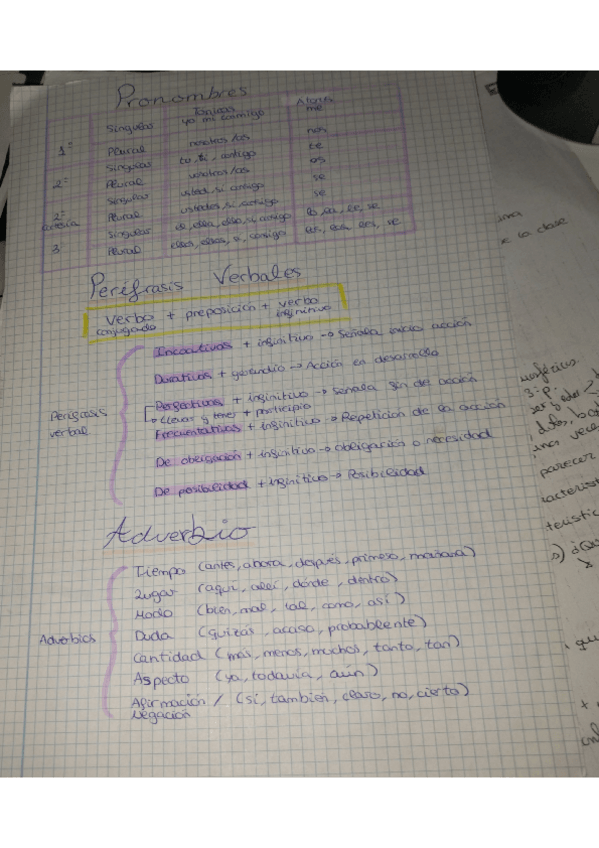 Pronombres
Tónicos Átonos
1ª Singular yo mi conmigo me
Plural nosotros/as nos
2ª Singular tu, ti, contigo te
Plural vosotros/as os
2ª cortesía Singular usted, si, consigo se
Plural ustedes, si, consigo se
3ª Singular el, ella, ello, si, consigo lo, la, le, se
Plural ellos, ellas, si, consigo los, las, les, se
Perífrasis Verbales
Verbo conjugado + preposición + verbo infinitivo
Perífrasis verbal
Incoactivas + infinitivo → Señala inicio acción
Durativas + gerundio → Acción en desarrollo
Perfectivas + infinitivo → señala fin de acción
→ llevar y tener + participio
Frecuentativas + infinitivo → Repetición de la acción
De obligación + infinitivo → obligación o necesidad
De posibilidad + infinitivo → Posibilidad
Adverbio
Adverbios
Tiempo (antes, ahora, después, primero, mañana)
Lugar (aquí, allí, dónde, dentro)
Modo (bien, mal, tal, como, así)
Duda (quizás, acaso, probablente)
Cantidad (más, menos, muchos, tanto, tan)
Aspecto (ya, todavía, aún)
Afirmación / Negación (si, también, claro, no, cierto)
e la clase
parecer